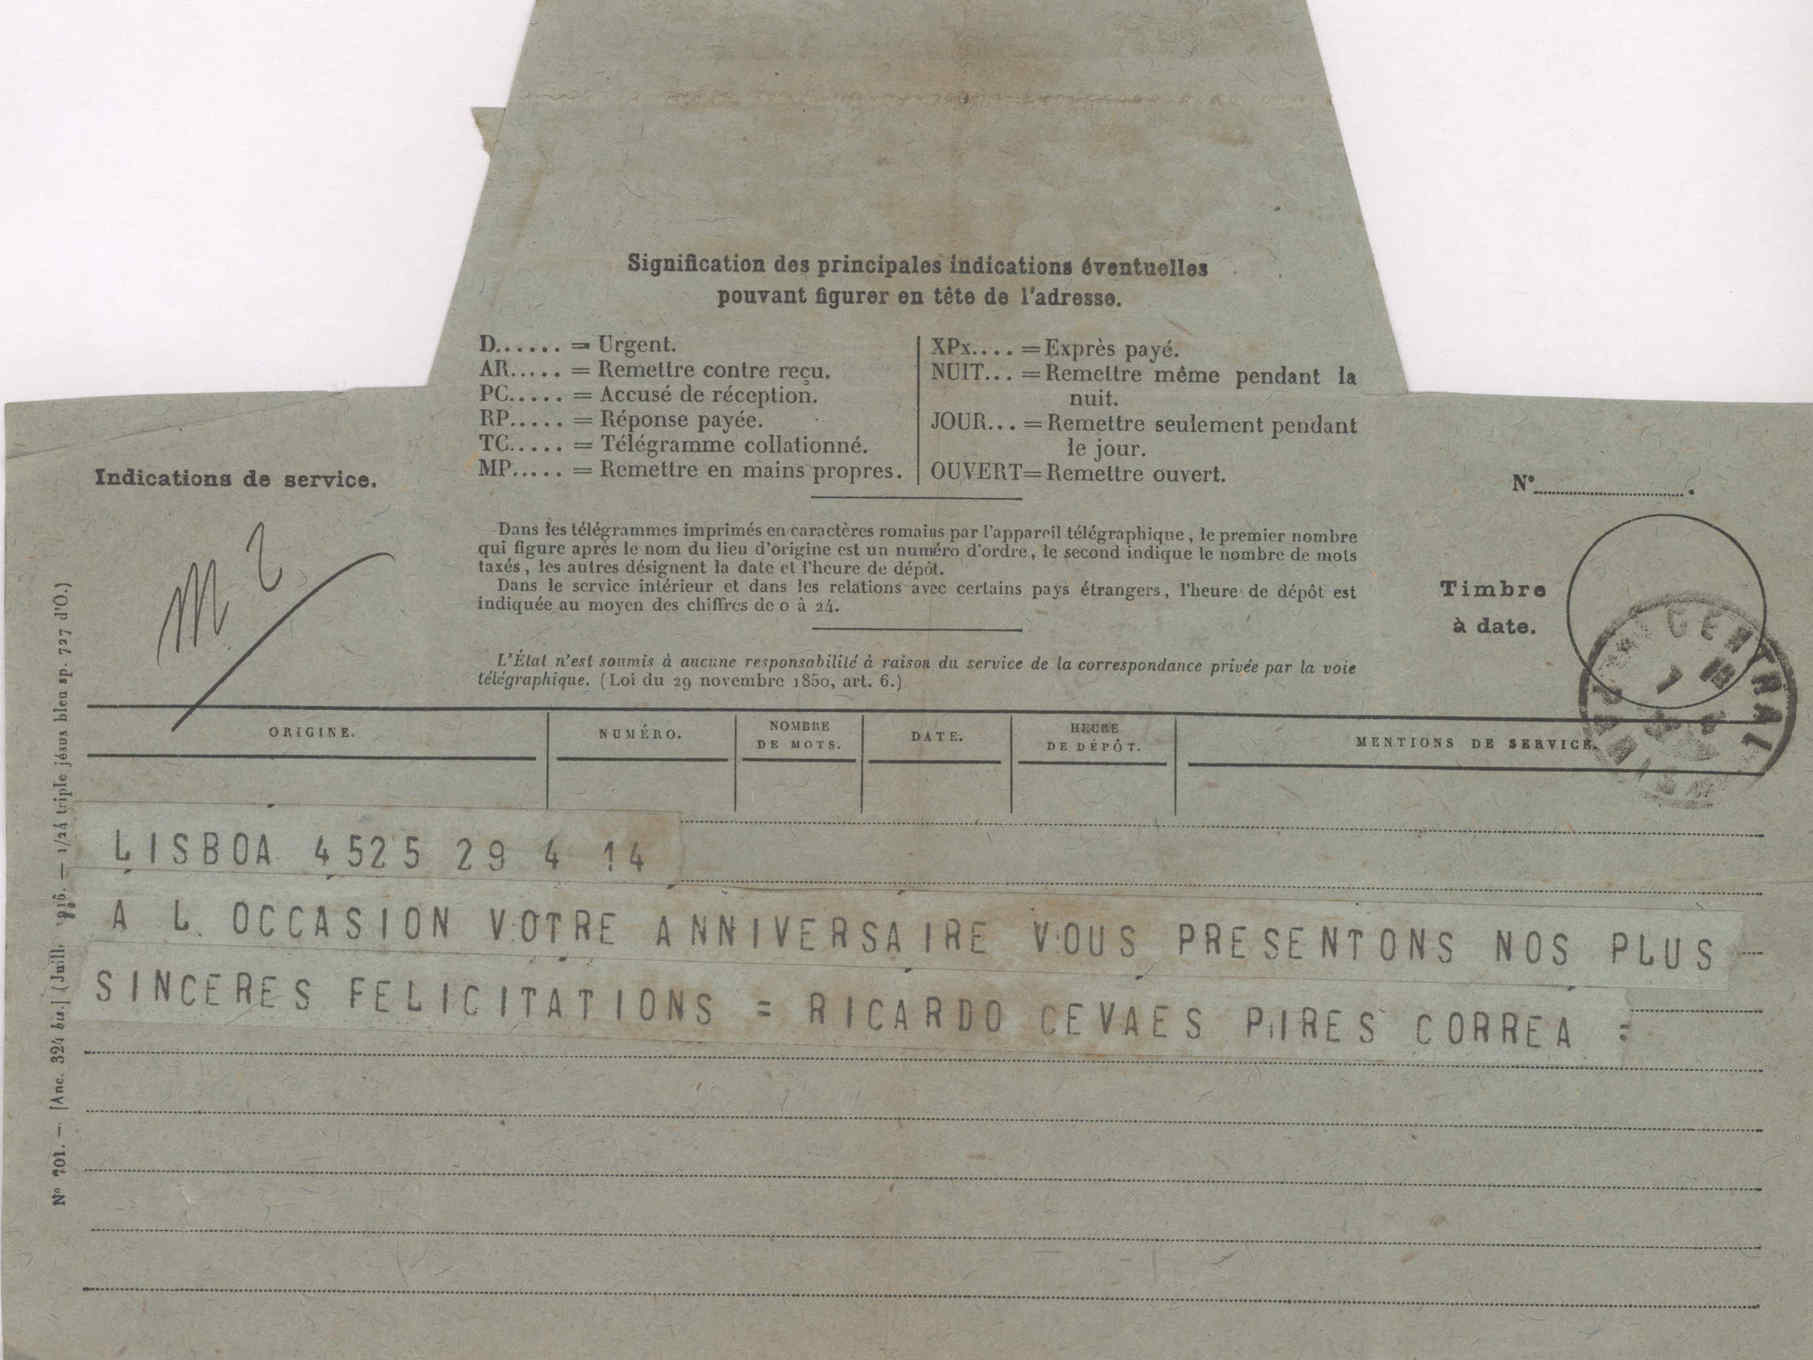 Signification des principales indications éventuelles
pouvant figurer en tête de l'adresse.
D...... = Urgent.
AR..... = Remettre contre reçu.
PC..... = Accusé de réception.
RP..... = Réponse payée.
TC..... = Télégramme collationné.
MP..... = Remettre en mains propres.
XPx.... = Exprès payé.
NUIT... = Remettre même pendant la
nuit.
JOUR... = Remettre seulement pendant
le jour.
OUVERT = Remettre ouvert.
Indications de service.
N°
Dans les télégrammes imprimés en caractères romains par l'appareil télégraphique, le premier nombre
qui figure après le nom du lieu d'origine est un numéro d'ordre, le second indique le nombre de mots
taxés, les autres désignent la date et l'heure de dépôt.
Dans le service intérieur et dans les relations avec certains pays étrangers, l'heure de dépôt est
indiquée au moyen des chiffres de 0 à 24.
Timbre
à date.
L'État n'est soumis à aucune responsabilité à raison du service de la correspondance privée par la voie
télégraphique. (Loi du 29 novembre 1850, art. 6.)
ORIGINE.
NUMÉRO.
NOMBRE
DE MOTS.
DATE.
HEURE
DE DÉPÔT.
MENTIONS DE SERVICE.
CENTRAL
LISBOA 4525 29 4 14
A L OCCASION VOTRE ANNIVERSAIRE VOUS PRESENTONS NOS PLUS
SINCERES FELICITATIONS = RICARDO CEVAES PIRES CORREA =
N° 701. — [Anc. 324 bis.] (Juill. 1916. — 1/24 triple jésus bleu sp. 727 d'O.)